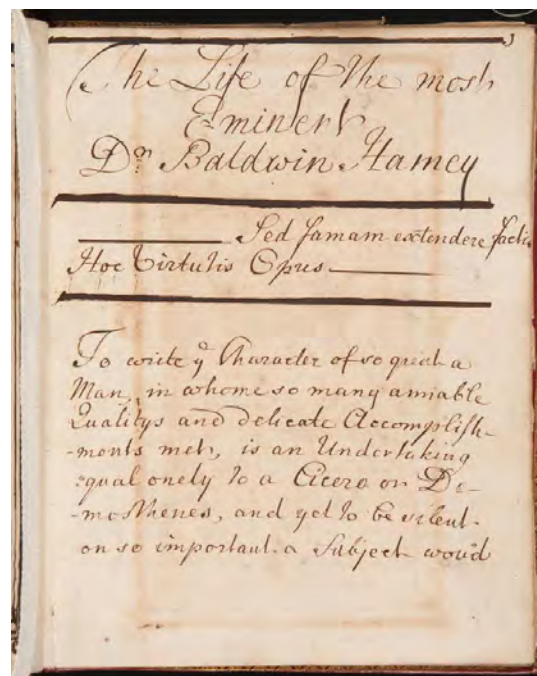 3
The Life of the most
Eminent
Dr Baldwin Hamey
Sed famam extendere factis
Hoc Virtutis Opus
To write ye Character of so great a
Man, in whome so many amiable
Qualitys and delicate Accomplish-
-ments met, is an Undertaking
equal onely to a Cicero or De-
-mosthenes, and yet to be silent
on so important a Subject wou'd